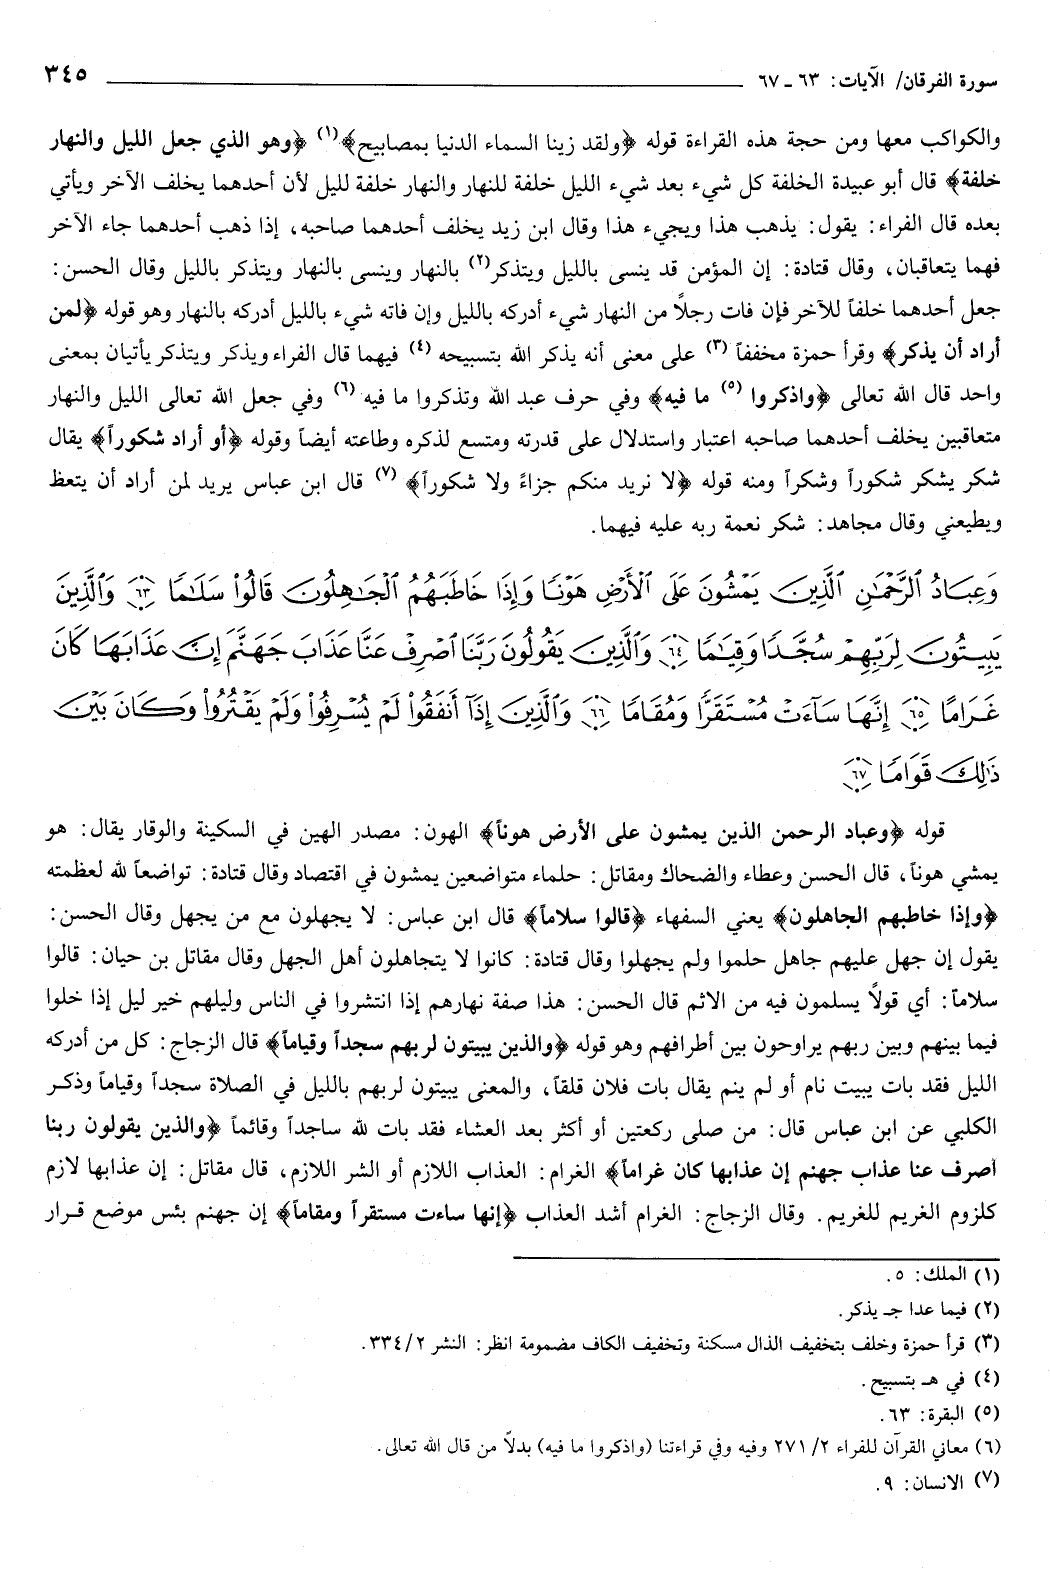 سورة الفرقان/ الآيات: ٦٣ ـ ٦٧ ٣٤٥
والكواكب معها ومن حجة هذه القراءة قوله ﴿ولقد زينا السماء الدنيا بمصابيح﴾(١) ﴿وهو الذي جعل الليل والنهار
خلفة﴾ قال أبو عبيدة الخلفة كل شيء بعد شيء الليل خلفة للنهار والنهار خلفة لليل لأن أحدهما يخلف الآخر ويأتي
بعده قال الفراء: يقول: يذهب هذا ويجيء هذا وقال ابن زيد يخلف أحدهما صاحبه، إذا ذهب أحدهما جاء الآخر
فهما يتعاقبان، وقال قتادة: إن المؤمن قد ينسى بالليل ويتذكر(٢) بالنهار وينسى بالنهار ويتذكر بالليل وقال الحسن:
جعل أحدهما خلفاً للآخر فإن فات رجلاً من النهار شيء أدركه بالليل وإن فاته شيء بالليل أدركه بالنهار وهو قوله ﴿لمن
أراد أن يذكر﴾ وقرأ حمزة مخففاً (٣) على معنى أنه يذكر الله بتسبيحه (٤) فيهما قال الفراء ويذكر ويتذكر يأتيان بمعنى
واحد قال الله تعالى ﴿واذكروا (٥) ما فيه﴾ وفي حرف عبد الله وتذكروا ما فيه (٦) وفي جعل الله تعالى الليل والنهار
متعاقبين يخلف أحدهما صاحبه اعتبار واستدلال على قدرته ومتسع لذكره وطاعته أيضاً وقوله ﴿أو أراد شكوراً﴾ يقال
شكر يشكر شكوراً وشكراً ومنه قوله ﴿لا نريد منكم جزاءً ولا شكوراً﴾ (٧) قال ابن عباس يريد لمن أراد أن يتعظ
ويطيعني وقال مجاهد: شكر نعمة ربه عليه فيهما.
وَعِبَادُ ٱلرَّحْمَٰنِ ٱلَّذِينَ يَمْشُونَ عَلَى ٱلْأَرْضِ هَوْنًا وَإِذَا خَاطَبَهُمُ ٱلْجَٰهِلُونَ قَالُوا۟ سَلَٰمًا ٦٣ وَٱلَّذِينَ
يَبِيتُونَ لِرَبِّهِمْ سُجَّدًا وَقِيَٰمًا ٦٤ وَٱلَّذِينَ يَقُولُونَ رَبَّنَا ٱصْرِفْ عَنَّا عَذَابَ جَهَنَّمَ إِنَّ عَذَابَهَا كَانَ
غَرَامًا ٦٥ إِنَّهَا سَآءَتْ مُسْتَقَرًّا وَمُقَامًا ٦٦ وَٱلَّذِينَ إِذَآ أَنفَقُوا۟ لَمْ يُسْرِفُوا۟ وَلَمْ يَقْتُرُوا۟ وَكَانَ بَيْنَ
ذَٰلِكَ قَوَامًا ٦٧
قوله ﴿وعباد الرحمن الذين يمشون على الأرض هوناً﴾ الهون: مصدر الهين في السكينة والوقار يقال: هو
يمشي هوناً، قال الحسن وعطاء والضحاك ومقاتل: حلماء متواضعين يمشون في اقتصاد وقال قتادة: تواضعاً لله لعظمته
﴿وإذا خاطبهم الجاهلون﴾ يعني السفهاء ﴿قالوا سلاماً﴾ قال ابن عباس: لا يجهلون مع من يجهل وقال الحسن:
يقول إن جهل عليهم جاهل حلموا ولم يجهلوا وقال قتادة: كانوا لا يتجاهلون أهل الجهل وقال مقاتل بن حيان: قالوا
سلاماً: أي قولاً يسلمون فيه من الاثم قال الحسن: هذا صفة نهارهم إذا انتشروا في الناس وليلهم خير ليل إذا خلوا
فيما بينهم وبين ربهم يراوحون بين أطرافهم وهو قوله ﴿والذين يبيتون لربهم سجداً وقياماً﴾ قال الزجاج: كل من أدركه
الليل فقد بات يبيت نام أو لم ينم يقال بات فلان قلقاً، والمعنى يبيتون لربهم بالليل في الصلاة سجداً وقياماً وذكر
الكلبي عن ابن عباس قال: من صلى ركعتين أو أكثر بعد العشاء فقد بات لله ساجداً وقائماً ﴿والذين يقولون ربنا
اصرف عنا عذاب جهنم إن عذابها كان غراماً﴾ الغرام: العذاب اللازم أو الشر اللازم، قال مقاتل: إن عذابها لازم
كلزوم الغريم للغريم. وقال الزجاج: الغرام أشد العذاب ﴿إنها ساءت مستقراً ومقاماً﴾ إن جهنم بئس موضع قرار
(١) الملك: ٥.
(٢) فيما عدا جـ يذكر.
(٣) قرأ حمزة وخلف بتخفيف الذال مسكنة وتخفيف الكاف مضمومة انظر: النشر ٢/ ٣٣٤.
(٤) في هـ بتسبيح.
(٥) البقرة: ٦٣.
(٦) معاني القرآن للفراء ٢/ ٢٧١ وفيه وفي قراءتنا (واذكروا ما فيه) بدلاً من قال الله تعالى.
(٧) الانسان: ٩.